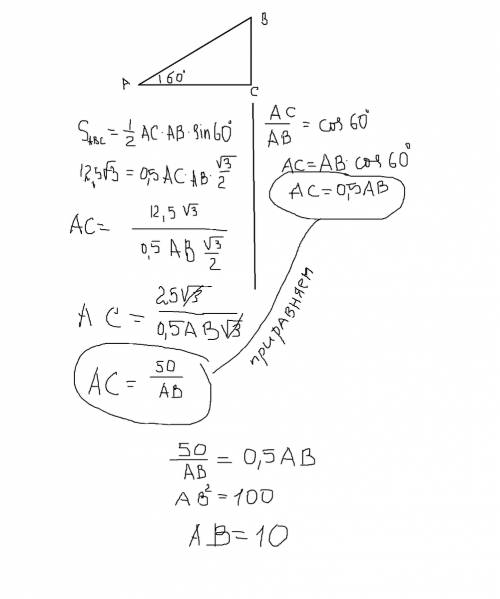 B
A 60° C
S_ABC = 1/2 AC · AB · sin 60°
12,5√3 = 0,5 AC · AB · √3/2
AC = 12,5 √3 / 0,5 AB √3/2
AC = 25√3 / 0,5AB√3
AC = 50/AB
AC/AB = cos 60°
AC = AB · cos 60°
AC = 0,5AB
приравняем
50/AB = 0,5AB
AB² = 100
AB = 10